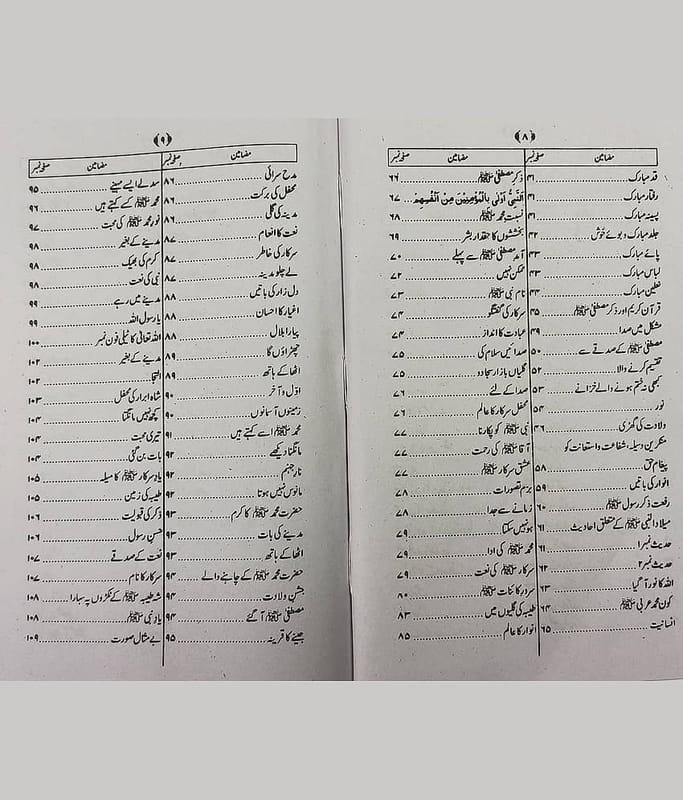 ﴿۸﴾
مضامین صفحہ نمبر مضامین صفحہ نمبر
قد مبارک ۳۱
رفتار مبارک ۳۱
پسینہ مبارک ۳۱
جلد مبارک و بوئے خوش ۳۲
پائے مبارک ۳۳
لباس مبارک ۳۳
نعلین مبارک ۳۴
قرآن کریم اور ذکر مصطفیٰ ﷺ ۳۵
مشکل میں صدا ۳۹
مصطفیٰ ﷺ کے صدقے سے ۵۰
تقسیم کرنے والا ۵۲
کبھی نہ ختم ہونے والے خزانے ۵۳
نور ۵۴
ولادت کی گھڑی ۳۶
منکرین وسیلہ، شفاعت و استعانت کو
پیغام حق ۵۸
انوار کی باتیں ۵۹
رفعت ذکر رسول ﷺ ۶۰
میلاد النبی ﷺ کے متعلق احادیث ۶۱
حدیث نمبر۱ ۶۱
حدیث نمبر۲ ۶۲
اللہ کا نور آ گیا ۶۳
کون محمد عربی ﷺ ۶۴
انسانیت ۶۵
ذکر مصطفیٰ ﷺ ۶۶
اَلنَّبِیُّ اَوْلٰی بِالْمُؤْمِنِیْنَ مِنْ اَنْفُسِهِمْ ۶۷
نسبت محمد ﷺ ۶۸
بخششوں کا حقدار بشر ۶۹
آمد مصطفیٰ ﷺ سے پہلے ۷۰
ممکن نہیں ۷۲
نام نبی ﷺ ۷۳
سرکار کی گفتگو ۷۴
عبادت کا انداز ۷۴
صدائیں سلام کی ۷۵
گلیاں بازار سجا دو ۷۵
صدا کے لئے ۷۶
محفل سرکار کا عالم ۷۶
نبی ﷺ کو پکارنا ۷۷
آقا ﷺ کی رحمت ۷۷
عشق سرکار ﷺ ۷۷
بزم تصورات ۷۸
زمانے سے جدا ۷۸
ہو نہیں سکتا ۷۹
محمد ﷺ کی ادا ۷۹
سرکار ﷺ کی نعت ۷۹
سرور کائنات ﷺ ۸۰
طیبہ کی گلیوں میں ۸۳
انوار کا عالم ۸۵
﴿۹﴾
مضامین صفحہ نمبر مضامین صفحہ نمبر
مدح سرائی ۸۶
محفل کی برکت ۸۶
مدینہ کی گلی ۸۶
نعت کا انعام ۸۷
سرکار کی خاطر ۸۷
لے چلو مدینہ ۸۷
دل زار کی باتیں ۸۸
اغیار کا احسان ۸۸
پیارا بلال ۸۸
چھڑاؤں گا ۸۹
اٹھا کے ہاتھ ۸۹
اوّل و آخر ۹۰
زمینوں آسمانوں ۹۰
محمد ﷺ اسے کہتے ہیں ۹۱
مانگنا دیکھے ۹۲
نار جہنم ۹۲
مانوس نہیں ہوتا ۹۲
حضرت محمد ﷺ کا کرم ۹۳
مدینے کی بات ۹۳
اٹھا کے ہاتھ ۹۳
حضرت محمد ﷺ کے چاہنے والے ۹۴
جشن ولادت ۹۴
مصطفیٰ ﷺ آ گئے ۹۴
جینے کا قرینہ ۹۵
سد لے ایسے مہینے ۹۵
محمد ﷺ کے کہتے ہیں ۹۶
نور محمد ﷺ کی محبت ۹۷
مدینے کے بغیر ۹۸
کرم کی بھیک ۹۸
نبی کی نعت ۹۸
مدینے میں رہے ۹۹
یا رسول اللہ ۹۹
اللہ تعالیٰ کا ٹیلی فون نمبر ۱۰۰
مدینے کے بغیر ۱۰۲
التجا ۱۰۲
شاہ ابرار کی محفل ۱۰۳
کچھ نہیں مانگتا ۱۰۴
تیری محبت ۱۰۴
بات بن گئی ۱۰۴
یاد سرکار ﷺ کا میلہ ۱۰۵
طیبہ کی زمین ۱۰۵
ذکر کی قبولیت ۱۰۶
حسن رسول ۱۰۶
نعت کے صدقے ۱۰۷
سرکار کا نام ۱۰۷
شہ طیبہ ﷺ کے ٹکڑوں پہ سہارا ۱۰۸
یاد نبی ﷺ ۱۰۸
بے مثال صورت ۱۰۹